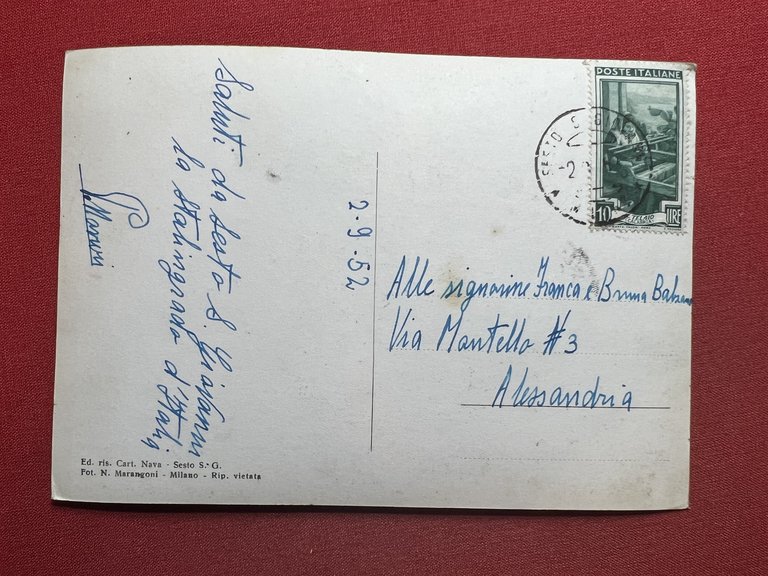 Saluti da Sesto S. Giovanni
la Stalingrado d'Italia
2.9.52
POSTE ITALIANE
SESTO S.
-2.
10 TELAIO LIRE
Alle signorine Franca e Bruna
Via Mantello #3
Alessandria
Ed. ris. Cart. Nava - Sesto S. G.
Fot. N. Marangoni - Milano - Rip. vietata